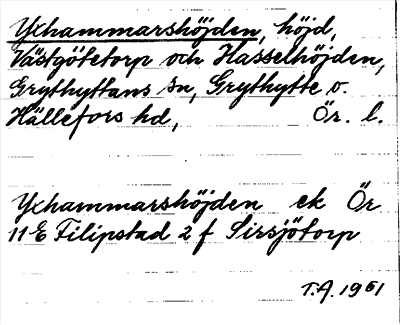 Yxhammarshöjden, höjd,
Västgötetorp och Hasselhöjden,
Grythyttans sn, Grythytte o.
Hällefors hd, Ör. l.
Yxhammarshöjden ek Ör
11 E Filipstad 2 f Sirsjötorp
T.A. 1961